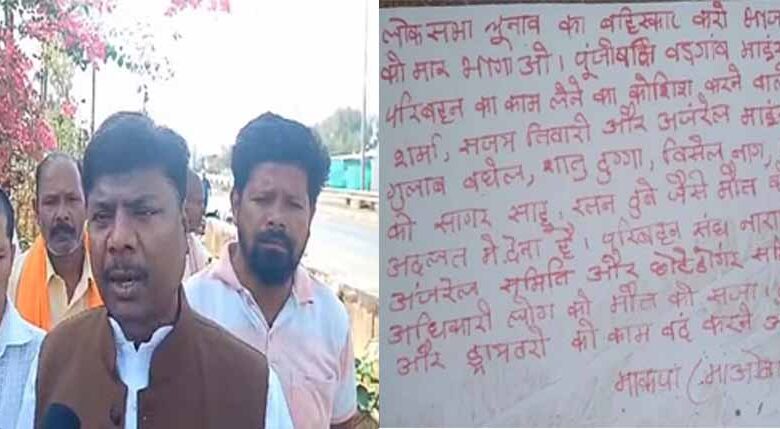 लोकसभा चुनाव का बहिस्कार करो भाज
को मार भागाओ। पूंजीपति बड़गांव माइं
परिबहन का काम लेने का कोशिश करने वा
शर्मा, संजय तिवारी और अंजरेल माइं
गुलाब बघेल, शातु दुग्गा, विसेल नाग,
को सागर साहू, रतन दुबे जैसे मौत
अदलत मे देना है। परिबहन संघ नारा
अंजरेल समिति और छोटेडोंगर सा
अधिकारी लोग को मौत की सजा।
और ड्रायवरो को काम बंद करने
माकपा (माओ